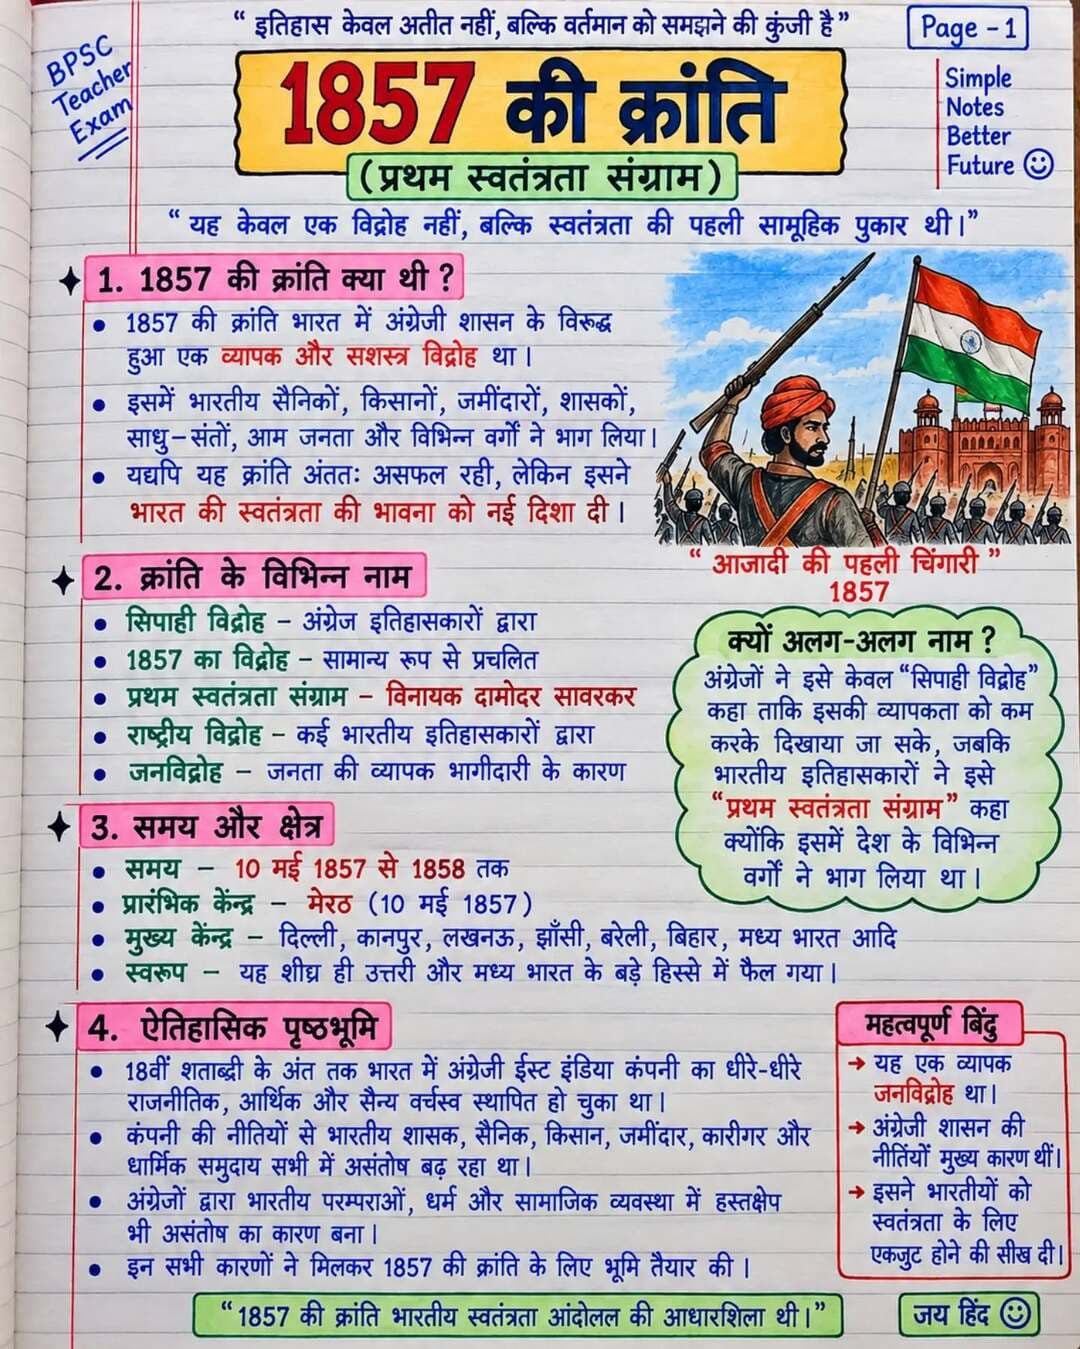 “ इतिहास केवल अतीत नहीं, बल्कि वर्तमान को समझने की कुंजी है ”
Page - 1
BPSC
Teacher
Exam
1857 की क्रांति
(प्रथम स्वतंत्रता संग्राम)
Simple
Notes
Better
Future
“ यह केवल एक विद्रोह नहीं, बल्कि स्वतंत्रता की पहली सामूहिक पुकार थी।”
1. 1857 की क्रांति क्या थी ?
• 1857 की क्रांति भारत में अंग्रेजी शासन के विरूद्ध
हुआ एक व्यापक और सशस्त्र विद्रोह था।
• इसमें भारतीय सैनिकों, किसानों, जमींदारों, शासकों,
साधु-संतों, आम जनता और विभिन्न वर्गों ने भाग लिया।
• यद्यपि यह क्रांति अंततः असफल रही, लेकिन इसने
भारत की स्वतंत्रता की भावना को नई दिशा दी।
“ आजादी की पहली चिंगारी ”
1857
2. क्रांति के विभिन्न नाम
• सिपाही विद्रोह – अंग्रेज इतिहासकारों द्वारा
• 1857 का विद्रोह – सामान्य रूप से प्रचलित
• प्रथम स्वतंत्रता संग्राम – विनायक दामोदर सावरकर
• राष्ट्रीय विद्रोह – कई भारतीय इतिहासकारों द्वारा
• जनविद्रोह – जनता की व्यापक भागीदारी के कारण
क्यों अलग-अलग नाम ?
अंग्रेजों ने इसे केवल “सिपाही विद्रोह”
कहा ताकि इसकी व्यापकता को कम
करके दिखाया जा सके, जबकि
भारतीय इतिहासकारों ने इसे
“प्रथम स्वतंत्रता संग्राम” कहा
क्योंकि इसमें देश के विभिन्न
वर्गों ने भाग लिया था।
3. समय और क्षेत्र
• समय – 10 मई 1857 से 1858 तक
• प्रारंभिक केंन्द्र – मेरठ (10 मई 1857)
• मुख्य केंन्द्र – दिल्ली, कानपुर, लखनऊ, झाँसी, बरेली, बिहार, मध्य भारत आदि
• स्वरूप – यह शीघ्र ही उत्तरी और मध्य भारत के बड़े हिस्से में फैल गया।
4. ऐतिहासिक पृष्ठभूमि
• 18वीं शताब्दी के अंत तक भारत में अंग्रेजी ईस्ट इंडिया कंपनी का धीरे-धीरे
राजनीतिक, आर्थिक और सैन्य वर्चस्व स्थापित हो चुका था।
• कंपनी की नीतियों से भारतीय शासक, सैनिक, किसान, जमींदार, कारीगर और
धार्मिक समुदाय सभी में असंतोष बढ़ रहा था।
• अंग्रेजों द्वारा भारतीय परम्पराओं, धर्म और सामाजिक व्यवस्था में हस्तक्षेप
भी असंतोष का कारण बना।
• इन सभी कारणों ने मिलकर 1857 की क्रांति के लिए भूमि तैयार की।
महत्वपूर्ण बिंदु
→ यह एक व्यापक
जनविद्रोह था।
→ अंग्रेजी शासन की
नीतिंयों मुख्य कारण थीं।
→ इसने भारतीयों को
स्वतंत्रता के लिए
एकजुट होने की सीख दी।
“1857 की क्रांति भारतीय स्वतंत्रता आंदोलल की आधारशिला थी।”
जय हिंद